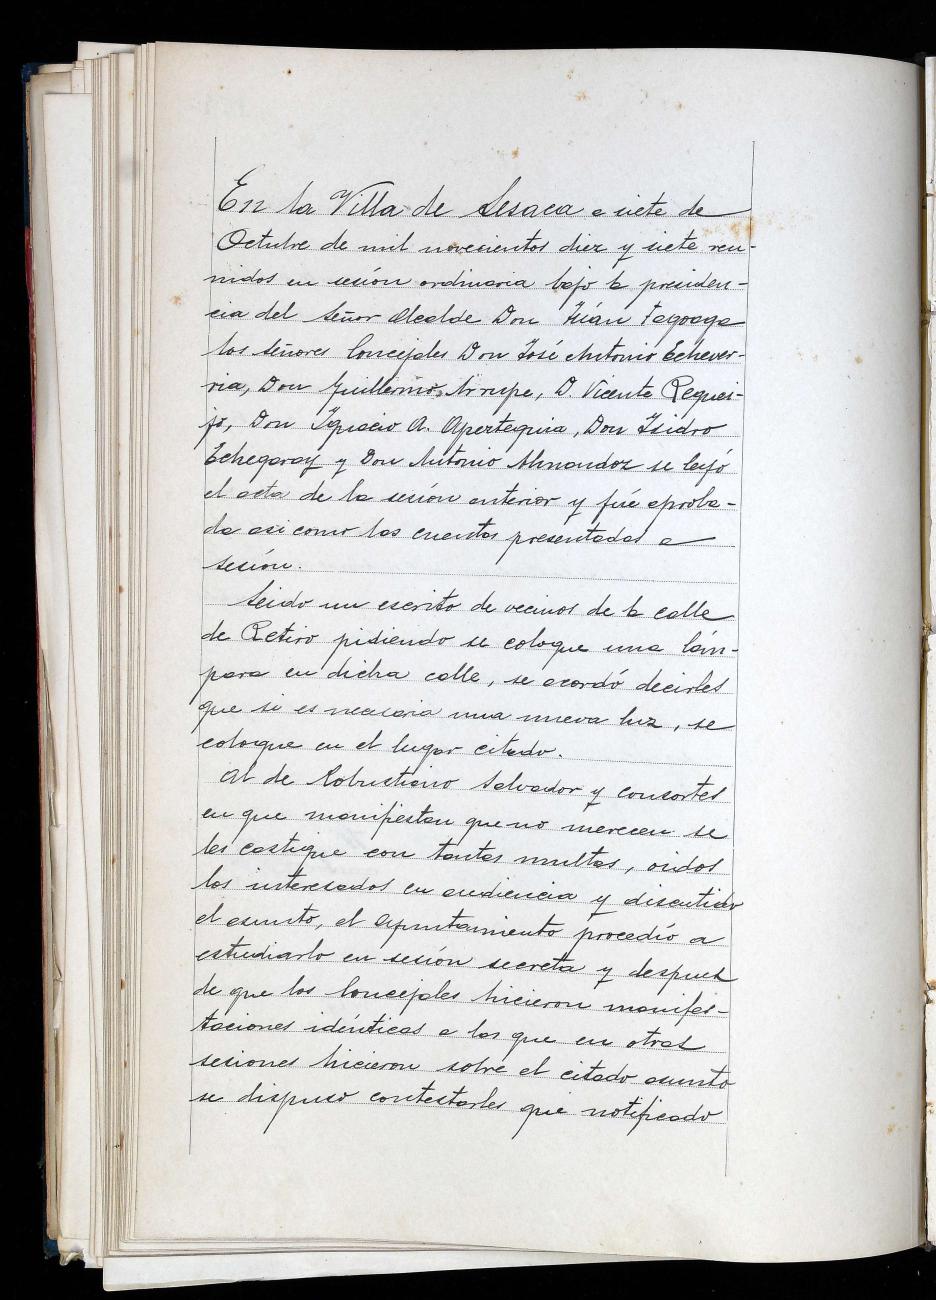 En la Villa de Lesaca a siete de
Octubre de mil novecientos diez y siete reu-
nidos en sesión ordinaria bajo la presiden-
cia del Señor Alcalde Don Juán Fagoaga
los señores Concejales Don José Antonio Echever-
ria, Don Guillermo Arrupe, D. Vicente Requei-
jo, Don Ignacio A. Aperteguia, Don Isidro
Echegaray y Don Antonio Almandoz se leyó
el acta de la sesión anterior y fué aproba-
da asi como las cuentas presentadas a
sesión.
Leido un escrito de vecinos de la calle
de Retiro pidiendo se coloque una lám-
para en dicha calle, se acordó decirles
que si es necesaria una nueva luz, se
coloque en el lugar citado.
Al de Robustiano Salvador y consortes
en que manifiestan que no merecen se
les castigue con tantas multas, oidos
los interesados en audiencia y discutido
el asunto, el Ayuntamiento procedió a
estudiarlo en sesión secreta y despues
de que los Concejales hicieron manifes-
taciones idénticas a las que en otras
sesiones hicieron sobre el citado asunto
se dispuso contestarles que notificado